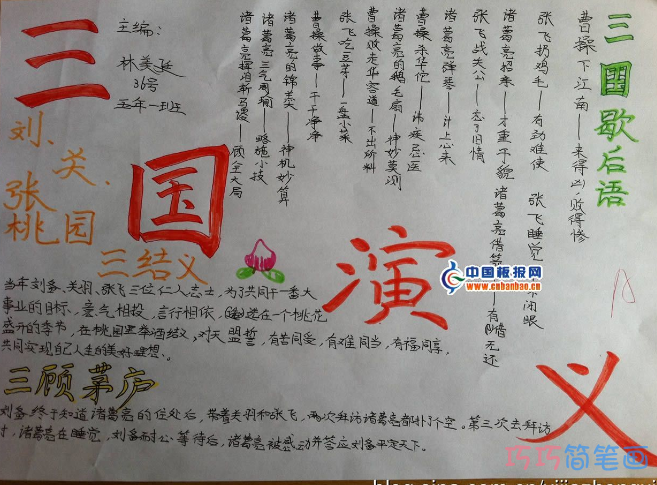 三国演义
主编：
林美延
36号
五年一班
刘、关、
张
桃园
三结义
三国歇后语
曹操下江南——来得凶，败得惨
张飞扔鸡毛——有劲难使 张飞睡觉——不闭眼
诸葛亮招亲——才重于貌 诸葛亮借箭——有借无还
张飞战关公——忘了旧情
诸葛亮弹琴——计上心来
曹操杀华佗——讳疾忌医
诸葛亮的鹅毛扇——神妙莫测
曹操败走华容道——不出所料
张飞吃豆芽——一盘小菜
曹操做事——干干净净
诸葛亮的锦囊——神机妙算
诸葛亮三气周瑜——略施小技
诸葛亮挥泪斩马谡——顾全大局
当年刘备、关羽、张飞三位仁人志士，为了共同干一番大
事业的目标，意气相投，言行相依，选在一个桃花
盛开的季节，在桃园里举酒结义，对天盟誓，有苦同受，有难同当，有福同享，
共同实现自己人生的美好理想。
三顾茅庐
刘备终于知道诸葛亮的住处后，带着关羽和张飞，两次拜访诸葛亮都扑了个空。第三次去拜访
时，诸葛亮在睡觉，刘备耐心等待后，诸葛亮被感动并答应刘备平定天下。
中国板报网
www.cnbanbao.cn
巧巧简笔画